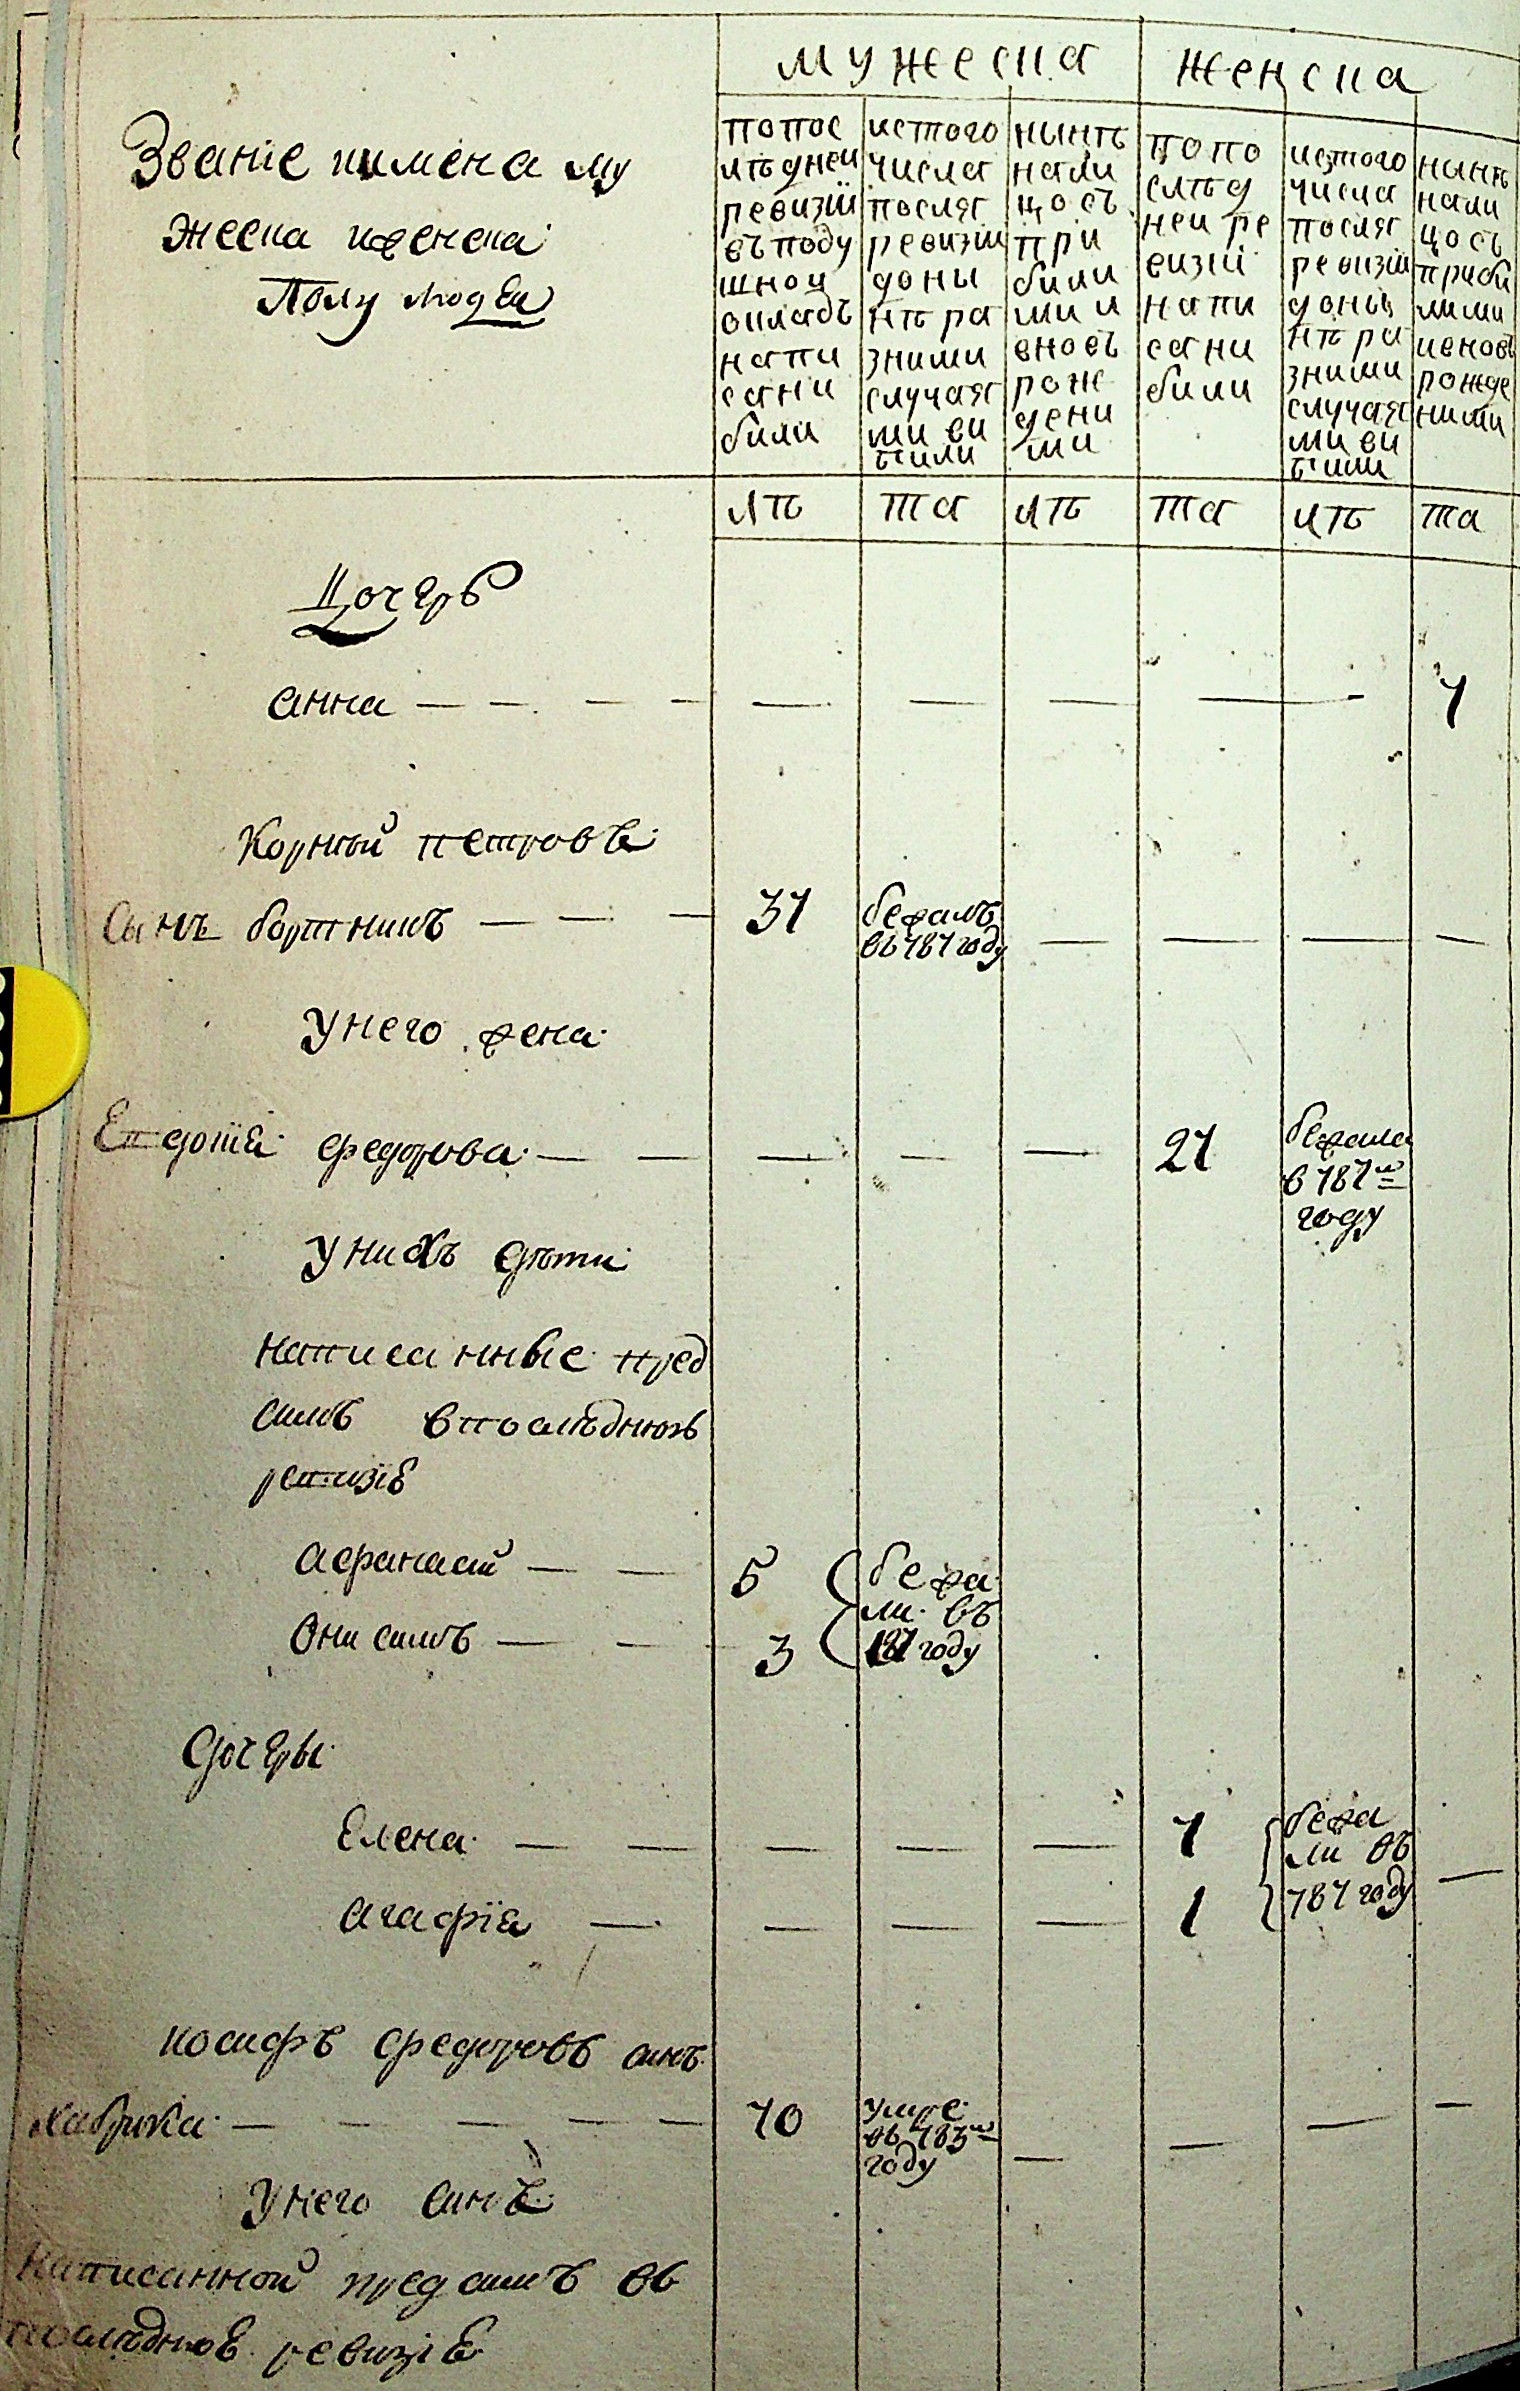 мужеска
женска
Званіе иимена му
жеска иженска
Полу людей
попос
лѣдней
ревизїи
въподу
шной
окладъ
напи
сани
били
истого
числа
послѧ
ревизіи
доны
нѣ ра
зними
случаѧ
ми ви
били
нынѣ
нали
цосъ
при
били
ми и
вновъ
рож
дени
ми
попо
слѣд
ней ре
визіи
напи
сани
били
изтого
числа
послѧ
ревизіи
доны
нѣ ра
зними
случаѧ
ми ви
били
нынѣ
нали
цосъ
приби
лими
ивновъ
рожде
ними
лѣ
та
лѣ
та
лѣ
та
Дочеръ
анна 1
Корнѣй петровъ
Сынъ бортникъ 31 бежалъ
въ 787 году
Унего жена
Евдокїя федорова 21 бежала
в 787м
году
Унихъ дѣти
написанные пред
симъ впослѣдною
ревизіе
афанасій 5 бежа
ли въ
787 году
Онисимъ 3
Дочеры
Елена 7 бежа
ли въ
787 году
агафїя 1
иосифъ федоровъ синъ
70 умре
въ 783м
году
Унего синъ
написанной предсимъ въ
послѣдное ревизіе